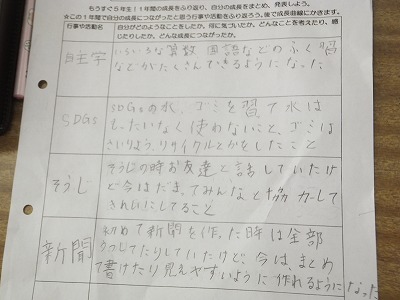 もうすぐ5年生!1年間の成長をふり返り、自分の成長をまとめ、発表しよう。
☆この1年間で自分の成長につながったと思う行事や活動をふり返ろう。後で成長曲線にかきます。
行事や活動名
自分がどのようなことをしたか。何に気づいたか。どんなことを考えたり、感
じたりしたか。どんな成長につながったか。
自主学
いろいろな算数 国語などのふく習
などがたくさんできるようになった
SDGs
SDGsの水、ゴミを習て水は
もったいなく使わないこと、ゴミは
さいりよう、リサイクルとかをしたこと
そうじ
そうじの時お友達と話していたけ
ど今はだまってみんなと協力して
きれいにしてること
新聞
初めて新聞を作った時は全部
うつしてたりしていたけど、今は、まとめ
て書けたり見えやすいように作れるようになった